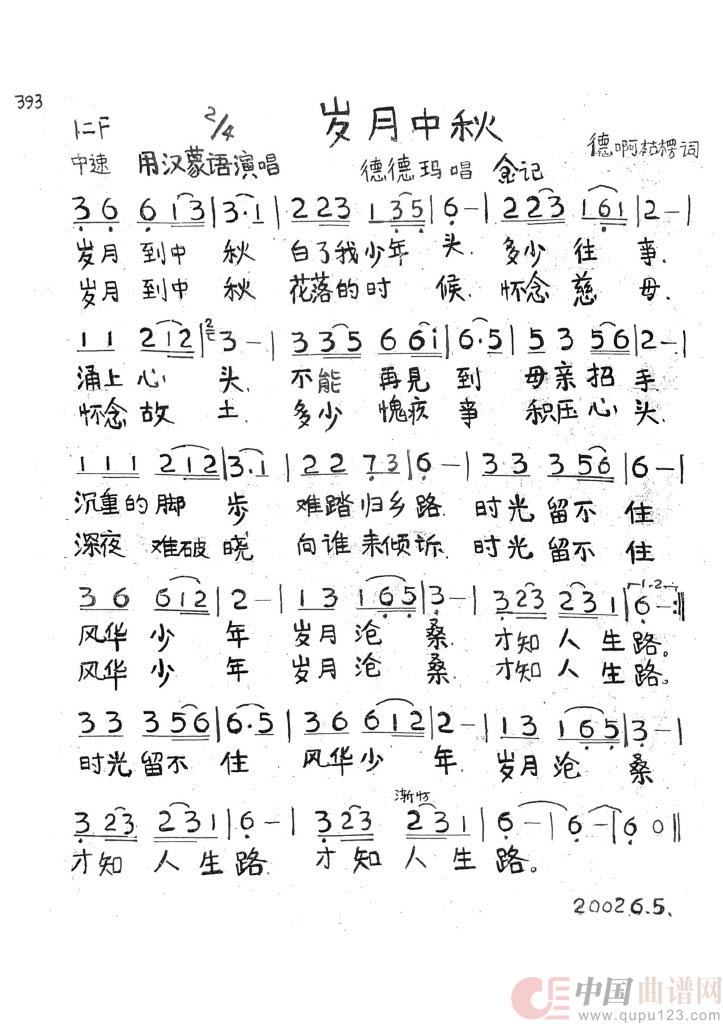 393
岁月中秋
1=F 2/4
德啊枯楞词
中速 用汉蒙语演唱 德德玛唱 金记
3 6 6 1 3 | 3·1 | 2 2 3 1 3 5 | 6 — | 2 2 3 1 6 1 | 2 — |
岁月到中秋 白了我少年头. 多少往事.
岁月到中秋 花落的时候. 怀念慈母.
1 1 2 1 2 | 3 — | 3 3 5 6 6 i | 6·5 | 5 3 5 6 | 2 — |
涌上心头. 不能再见到 母亲招手
怀念故土. 多少愧疚事 积压心头.
1 1 1 2 1 2 | 3·1 | 2 2 7 3 | 6 — | 3 3 3 5 6 | 6 — |
沉重的脚步 难踏归乡路. 时光留不住
深夜难破晓 向谁来倾诉. 时光留不住
3 6 6 1 2 | 2 — | 1 3 1 6 5 | 3 — | 3 2 3 2 3 1 | 1.2 6 — :||
风华少年 岁月沧桑. 才知人生路。
风华少年 岁月沧桑. 才知人生路。
3 3 3 5 6 | 6·5 | 3 6 6 1 2 | 2 — | 1 3 1 6 5 | 3 — |
时光留不住 风华少年. 岁月沧桑
渐慢
3 2 3 2 3 1 | 6 — | 3 2 3 2 3 1 | 6 — | 6 — | 6 0 ||
才知人生路. 才知人生路。
2002 6.5.
中国曲谱网
www.qupu123.com